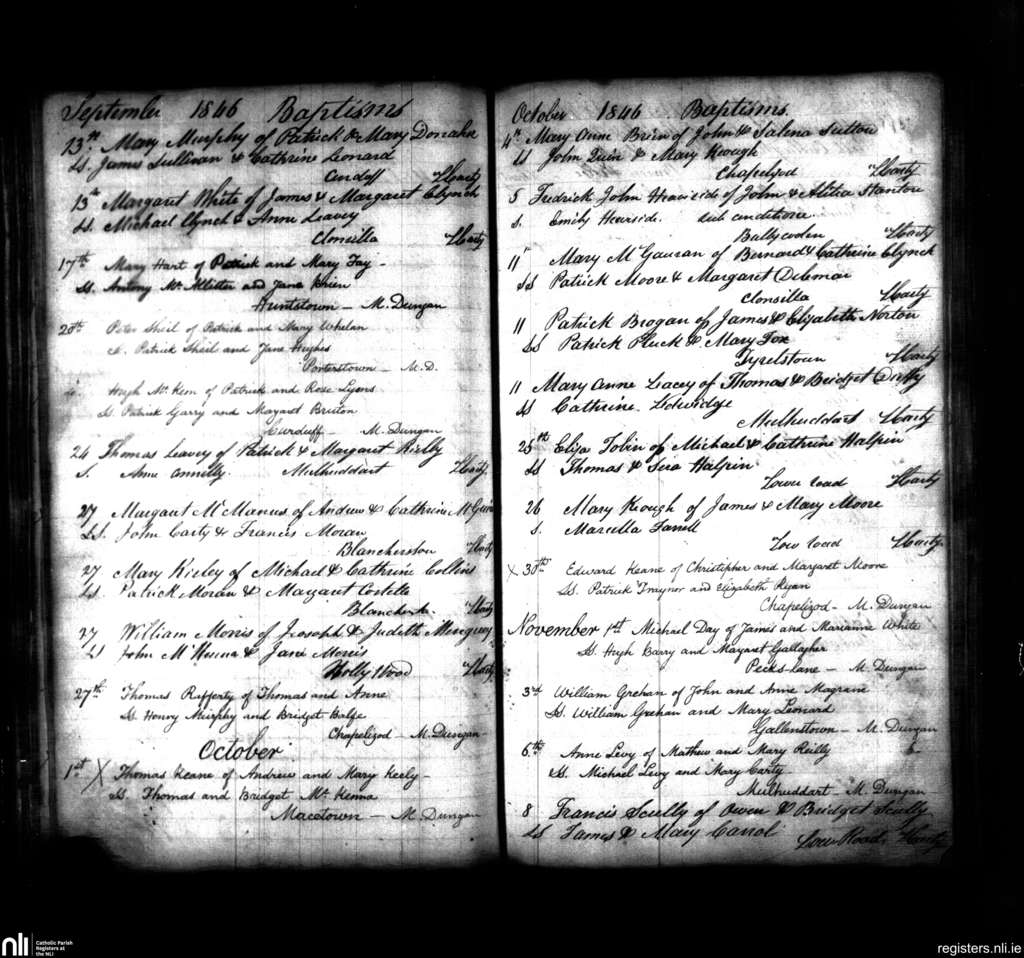 September 1846 Baptisms
13th Mary Murphy of Patrick & Mary Donahu
Ss. James Sullivan & Cathrine Leonard
Harty
15th Margaret White of James & Margaret Clynch
Ss. Michael Clynch & Anne Leavey
Clonsilla Harty
17th Mary Hart of Patrick and Mary Fay -
Ss. Antony Mc Allister and Jane Brien
Huntstown - M. Dungan
20th Peter Sheil of Patrick and Mary Whelan
S. Patrick Sheil and Jane Hughes
Porterstown - M.D.
Hugh Mc Kem of Patrick and Rose Lyons
Ss. Patrick Garry and Margaret Bruton
Curduff - M. Dungan
24 Thomas Leavey of Patrick & Margaret Rielly
S. Anne Connelly Mulhuddart Harty
27 Margaret McManus of Andrew & Cathrine
Ss. John Carty & Francis Moran
Blancherston Harty
27 Mary Kieley of Michael & Cathrine Collins
Ss Patrick Moran & Margaret Costello
Harty
27 William Morris of Joseph & Judith
Ss John & Jane Morris
Holly Wood Harty
27th Thomas Rifferty of Thomas and Anne
Ss. Henry Murphy and Bridget
Chapelizod - M. Dungan
October
1st X Thomas Keane of Andrew and Mary Keely -
Ss. Thomas and Bridget Mc Kenna
Macetown - M Dungan
October 1846 Baptisms
4th Mary Anne Brien of John & Salina Sutton
Ss John Quin & Mary Keough
Chapelizod Harty
5 Fedrick John Heaviside of John & Stanton
S. Emily Heaviside. sub conditione
Harty
11th Mary McGauran of Bernard & Cathrine Clynch
Ss Patrick Moore & Margaret
Clonsilla Harty
11 Patrick Brogan of James & Elizabeth Norton
Ss Patrick Pluck & Mary Fox
Tyrelstown Harty
11 Mary Anne Lacey of Thomas & Bridget Duffy
Ss Cathrine Ledwidge
Mulhuddart Harty
25th Eliza Tobin of Michael & Cathrine Halpin
Ss Thomas & Sera Halpin
Lower road Harty
26 Mary Keough of James & Mary Moore
S. Marcella Farrell
Low road Harty
X 30th Edward Keane of Christopher and Margaret Moore
Ss. Patrick Traynor and Elizabeth Ryan
Chapelizod - M. Dungan
November 1st Michael Day of James and Marianne White
Ss. Hugh Barry and Margaret Gallagher
Pecks-lane - M. Dungan
3rd William Grehan of John and Anne Magrane
Ss. William Grehan and Mary Leonard
Gallenstown - M. Dungan
6th Anne Levy of Mathew and Mary Reilly
Ss. Michael Levy and Mary Carty
Mulhuddart - M. Dungan
8 Francis Scully of Owen & Bridget Scully
Ss James & Mary Carrol
Low Road Harty
nli Catholic Parish Registers at the NLI
registers.nli.ie